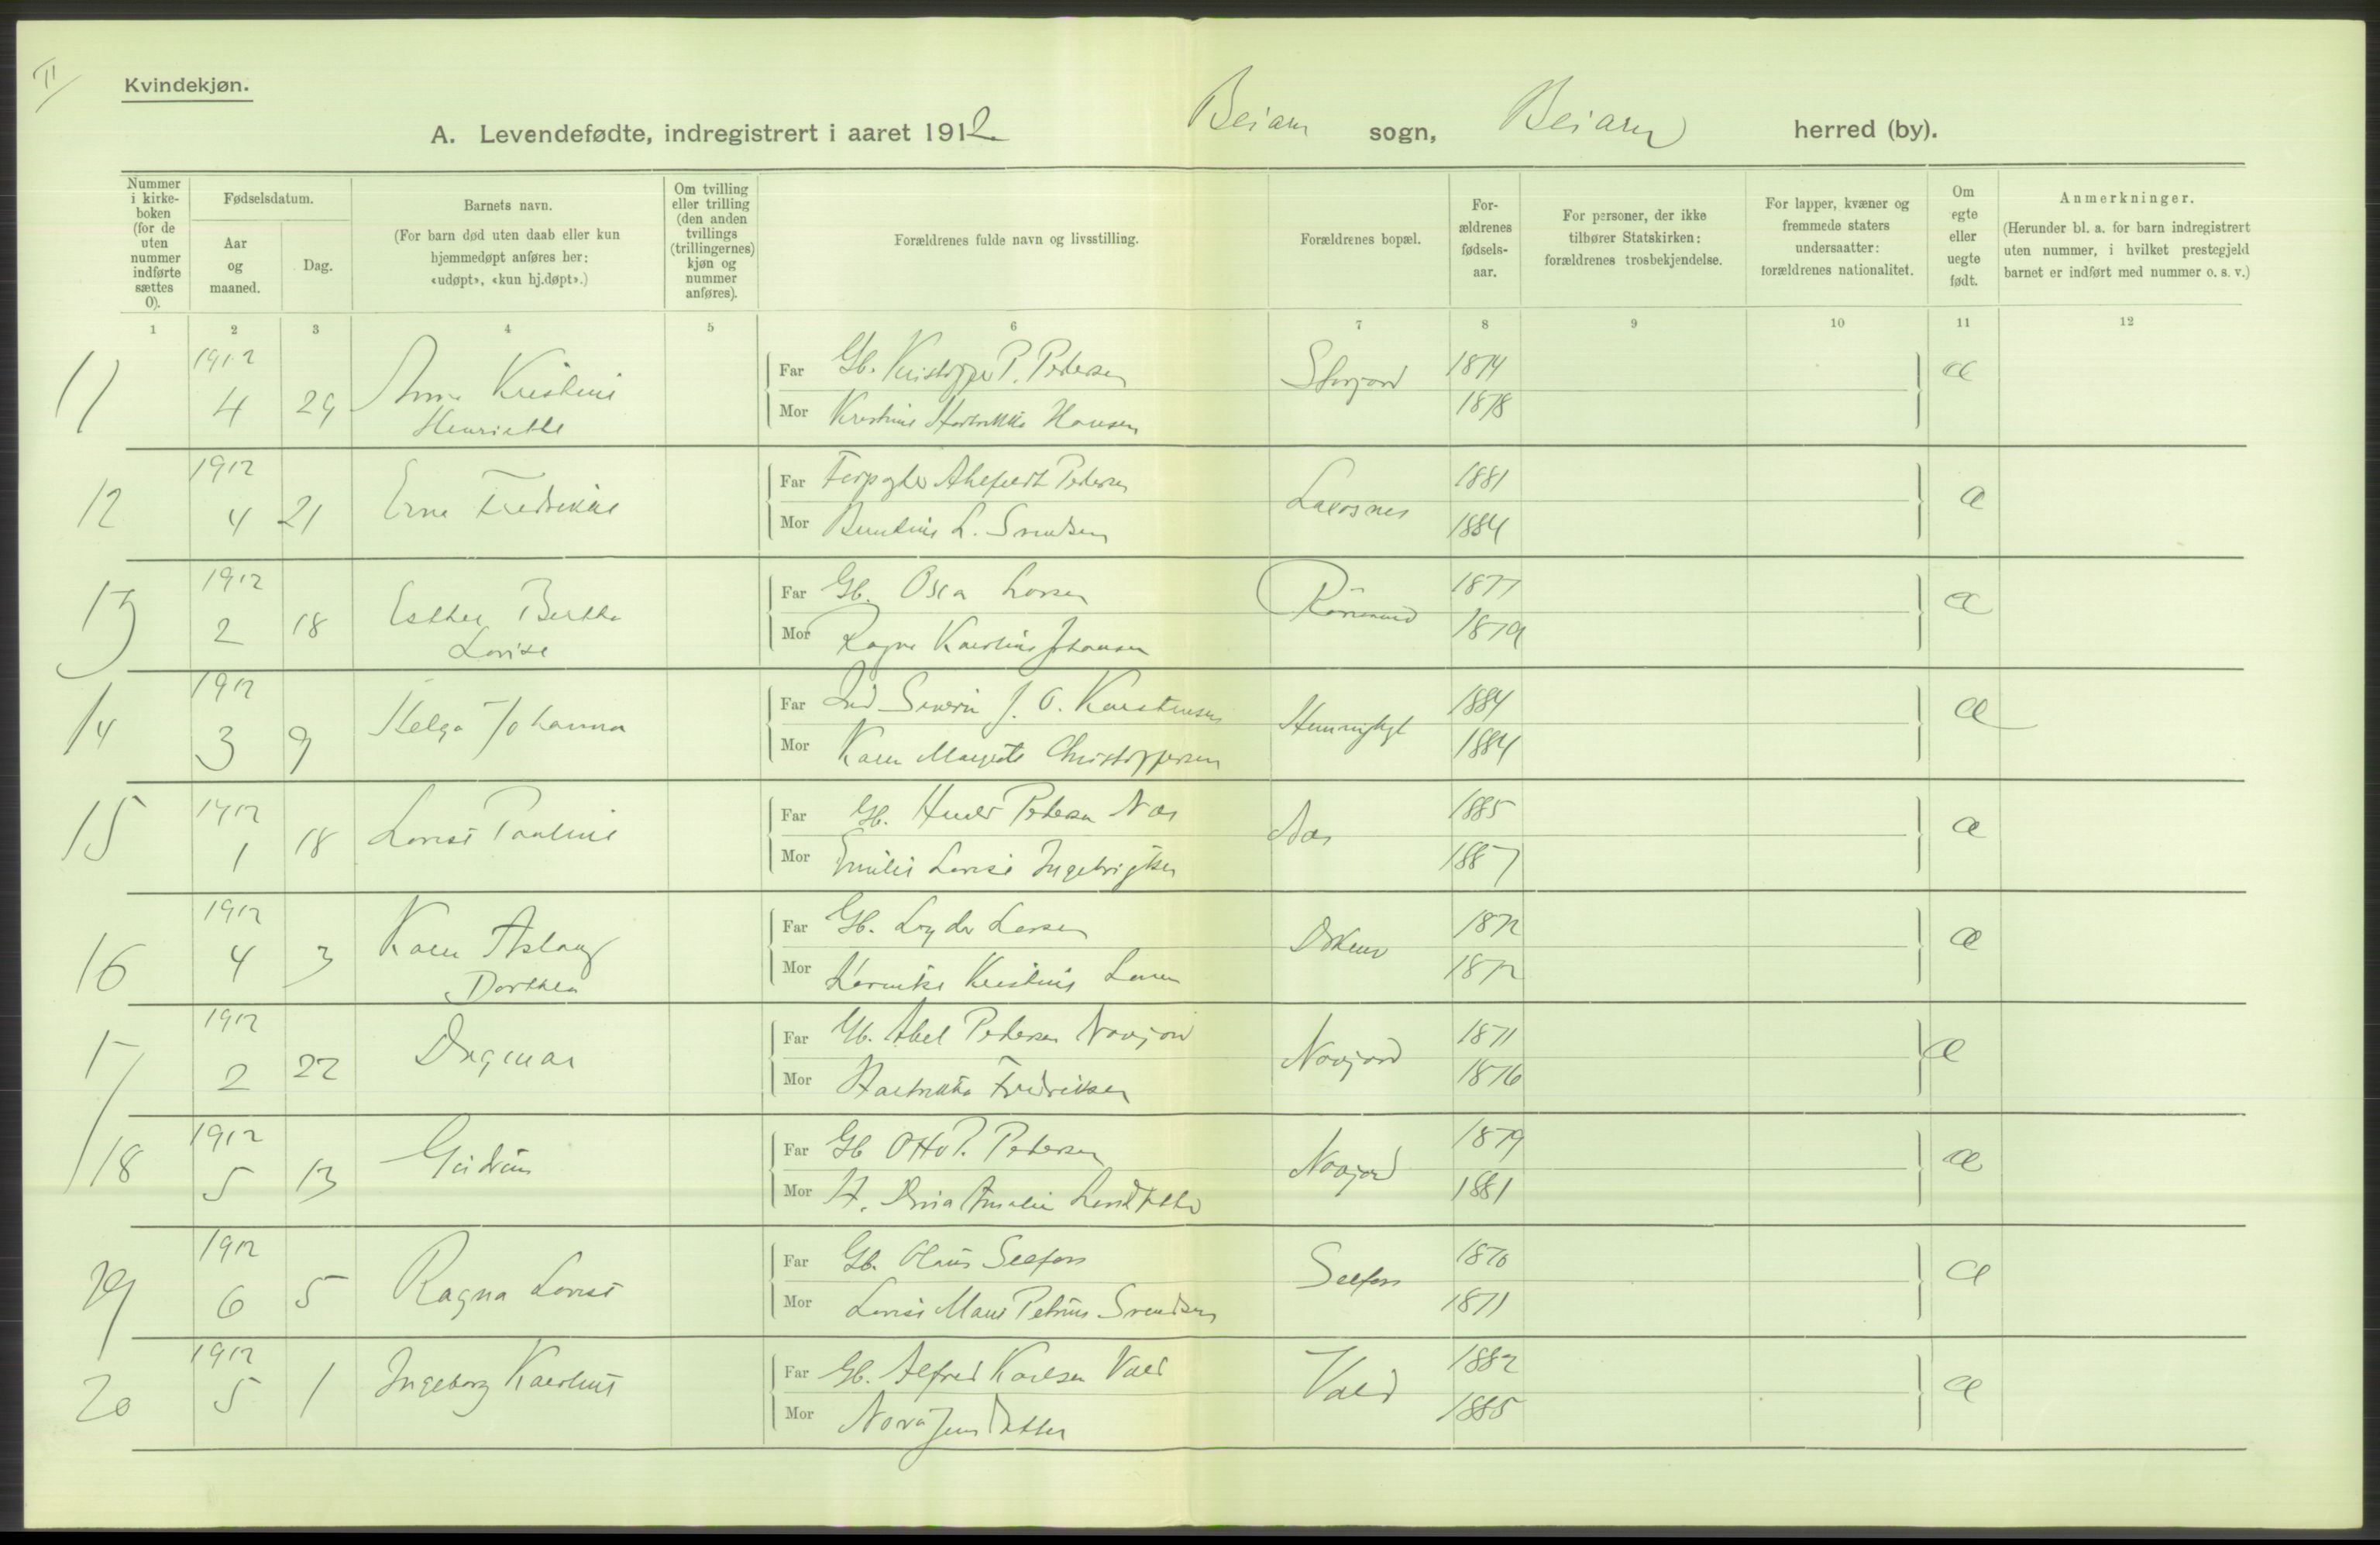 II
Kvindekjøn.
A. Levendefødte, indregistrert i aaret 1912 Beiarn sogn, Beiarn herred (by).
Nummer i kirke-boken (for de uten nummer indførte sættes 0).
Fødselsdatum.
Aar og maaned.
Dag.
Barnets navn.
(For barn død uten daab eller kun hjemmedøpt anføres her: «udøpt», «kun hj.døpt».)
Om tvilling eller trilling (den anden tvillings (trillingernes) kjøn og nummer anføres).
Forældrenes fulde navn og livsstilling.
Forældrenes bopæl.
For-ældrenes fødsels-aar.
For personer, der ikke tilhører Statskirken: forældrenes trosbekjendelse.
For lapper, kvæner og fremmede staters undersaatter: forældrenes nationalitet.
Om egte eller uegte født.
Anmerkninger.
(Herunder bl. a. for barn indregistrert uten nummer, i hvilket prestegjeld barnet er indført med nummer o. s. v.)
1 2 3 4 5 6 7 8 9 10 11 12
11 1912 4 29 Anna Kristine Henriette
Far Gb. Kristoffer P. Pedersen Storjord 1874 æ
Mor Kristine Hartvikka Hansen 1878
12 1912 4 21 Erna Fredrikke
Far Pedersen 1881 æ
Mor L. Svendsen 1884
13 1912 2 18 Esther Bertha Lovise
Far Gb. Larsen 1877 æ
Mor Ragna Karoline Johansen 1879
14 1912 3 9 Helga Johanna
Far Severin J. O. Karstensen 1884 æ
Mor Karen Margrete Christoffersen 1884
15 1912 1 18 Lovise Pauline
Far Gb. Pedersen 1885 æ
Mor Emilie Lovise Ingebrigtsen 1887
16 1912 4 3 Karen Aslaug Dorthea
Far Gb. Lyder Larsen 1872 æ
Mor Kristine Larsen 1872
17 1912 2 22 Dagmar
Far Gb. Abel Pedersen Navjord Navjord 1871 æ
Mor Hartvikka Fredriksen 1876
18 1912 5 13 Gudrun
Far Gb Otto P. Pedersen Navjord 1879 æ
Mor H. Amalie 1881
19 1912 6 5 Ragna Lovise
Far Gb. Olaus Selfors Selfors 1870 æ
Mor Lovise Petrine Svendsen 1871
20 1912 5 1 Ingeborg Karoline
Far Gb. Alfred Karlsen Vald Vald 1882 æ
Mor Nora Jensdatter 1885